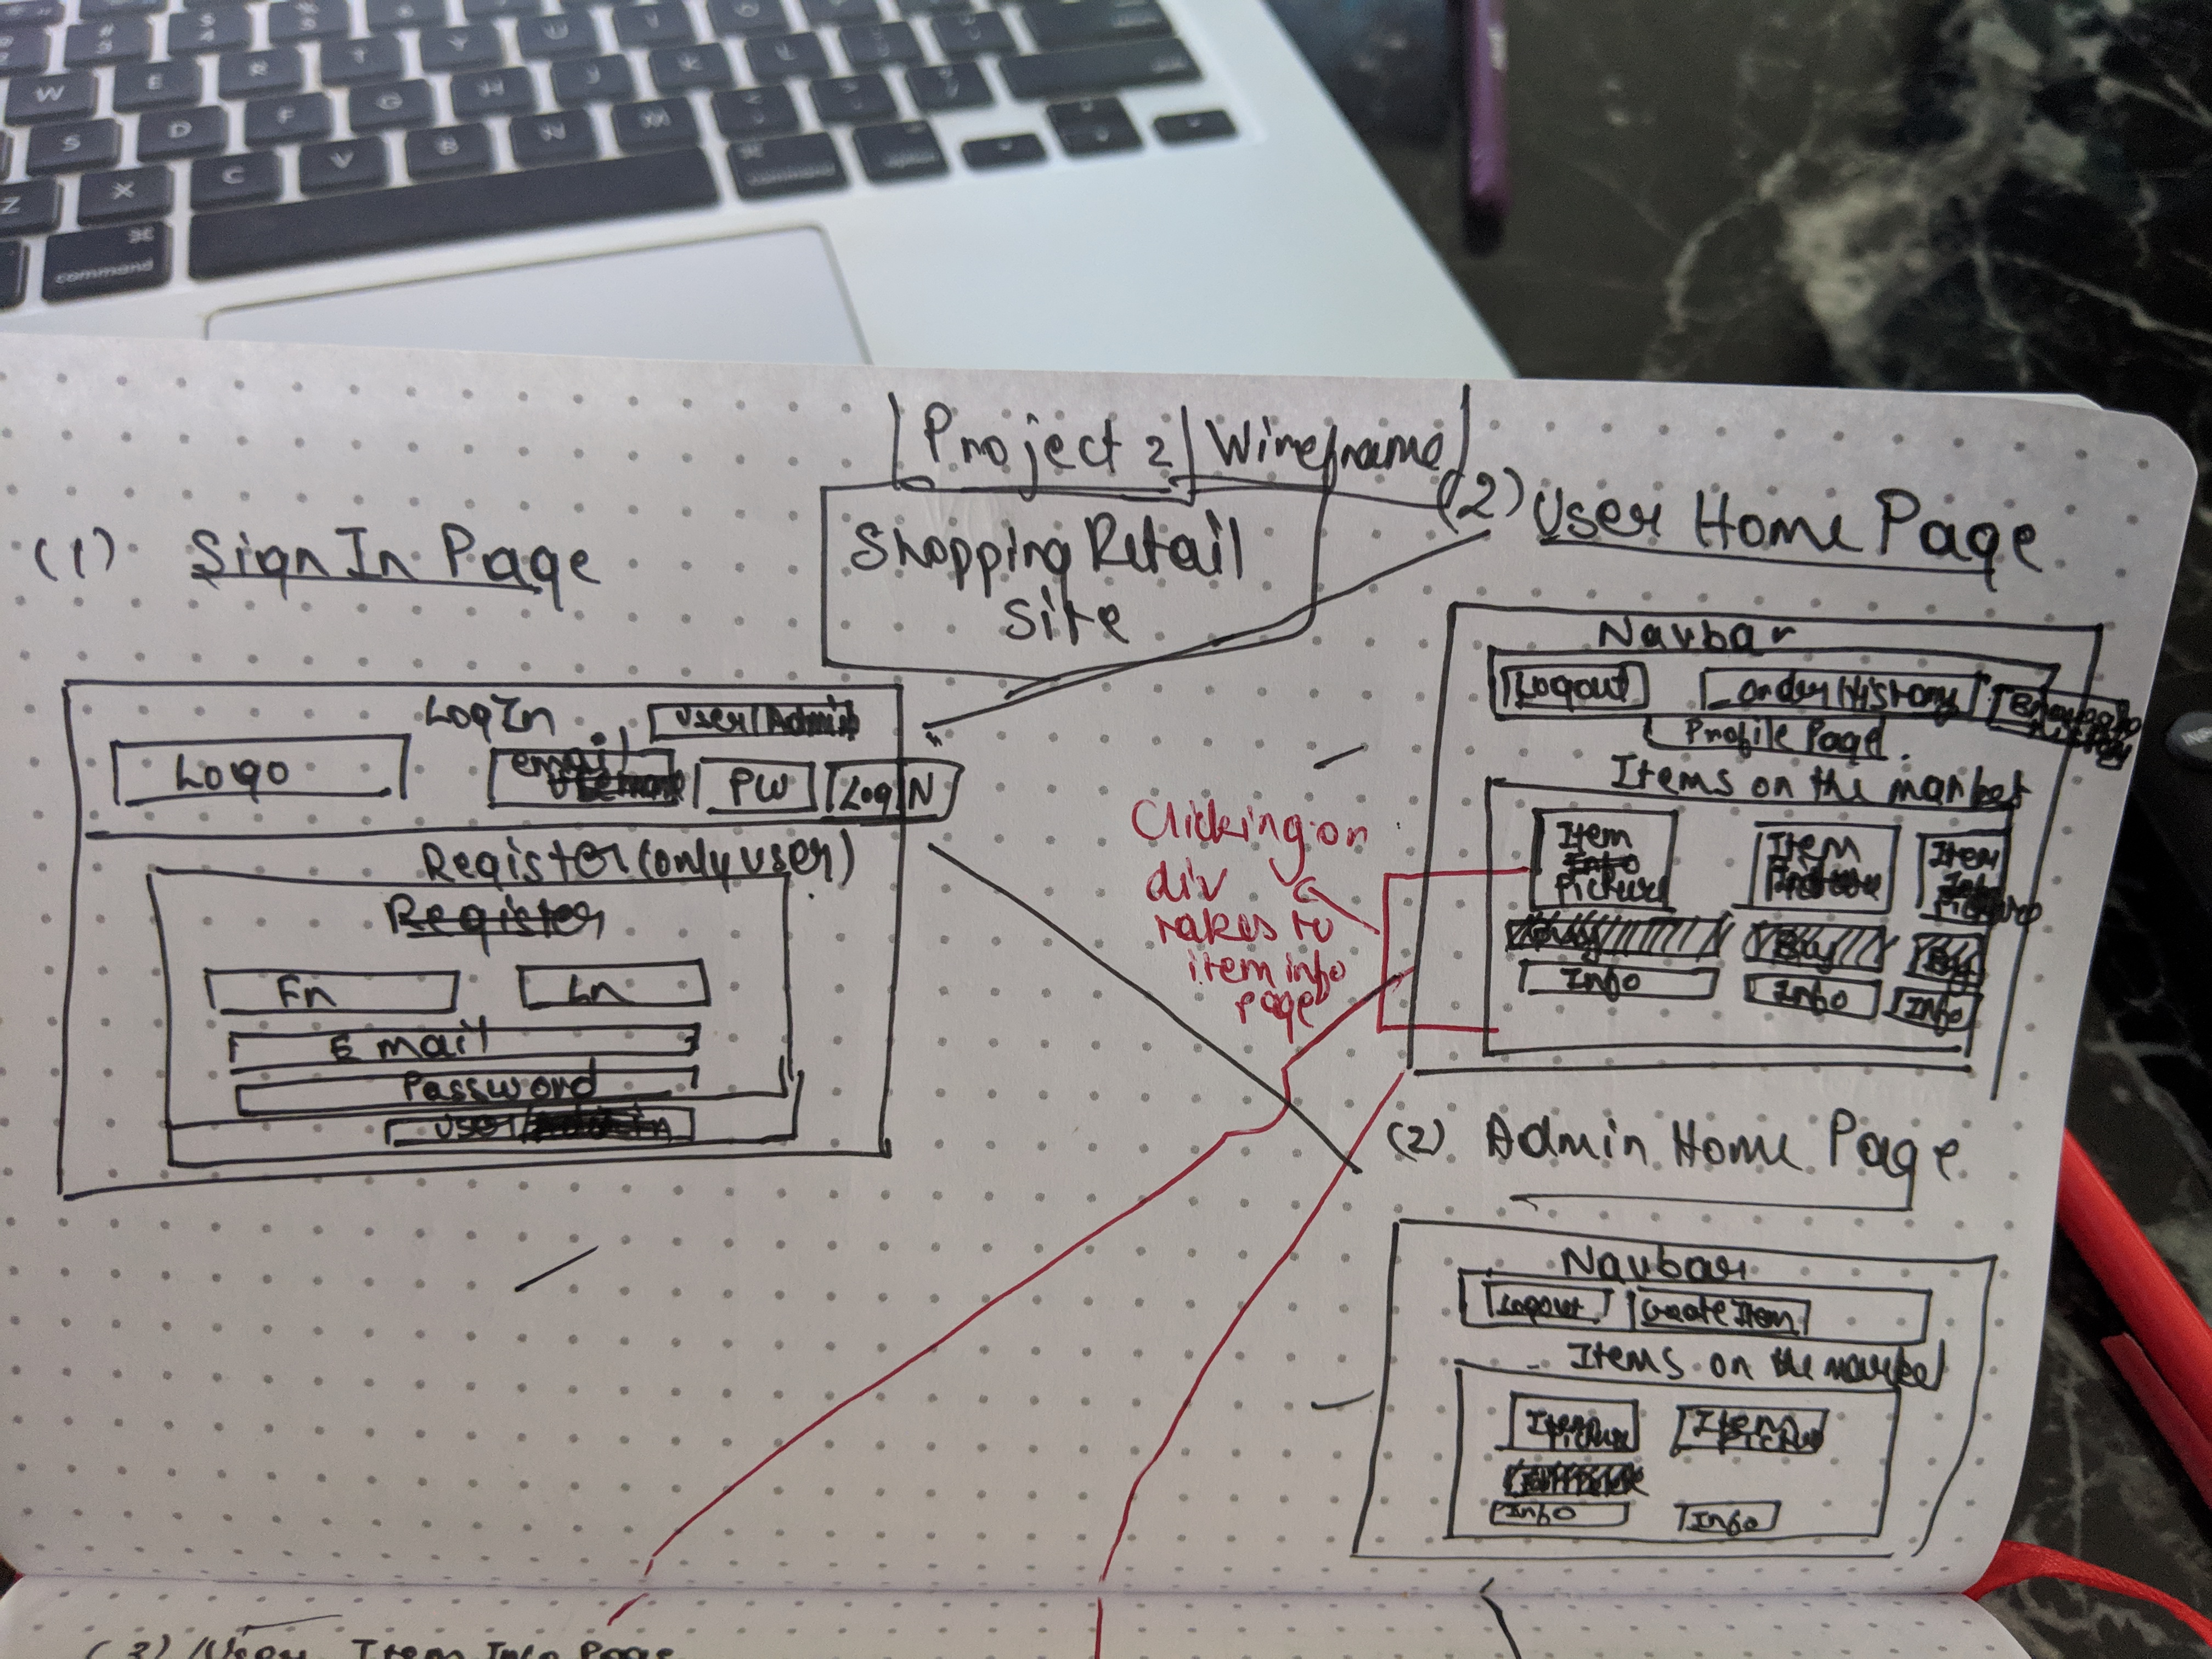 Project 2 Wireframe
Shopping Retail
Site
(1) Sign In Page
Log In
User/Admin
Logo
email
PW
Log IN
Register (only user)
Register
Fn
Ln
Email
Password
User/
(2) User Home Page
Navbar
Logout
Order History
Profile Page
Items on the market
Item
Info
Picture
Item
Picture
Item
Info
Picture
Buy
Buy
Buy
Info
Info
Info
Clicking on
div
takes to
item info
page
(2) Admin Home Page
Navbar
Logout
Create Item
Items on the market
Item
Picture
Item
Picture
Info
Info
(3) User Item Info Page
W
E
R
T
Y
U
S
D
F
G
H
J
K
L
Z
X
C
V
B
N
M
⌘
command
⌘
command
option